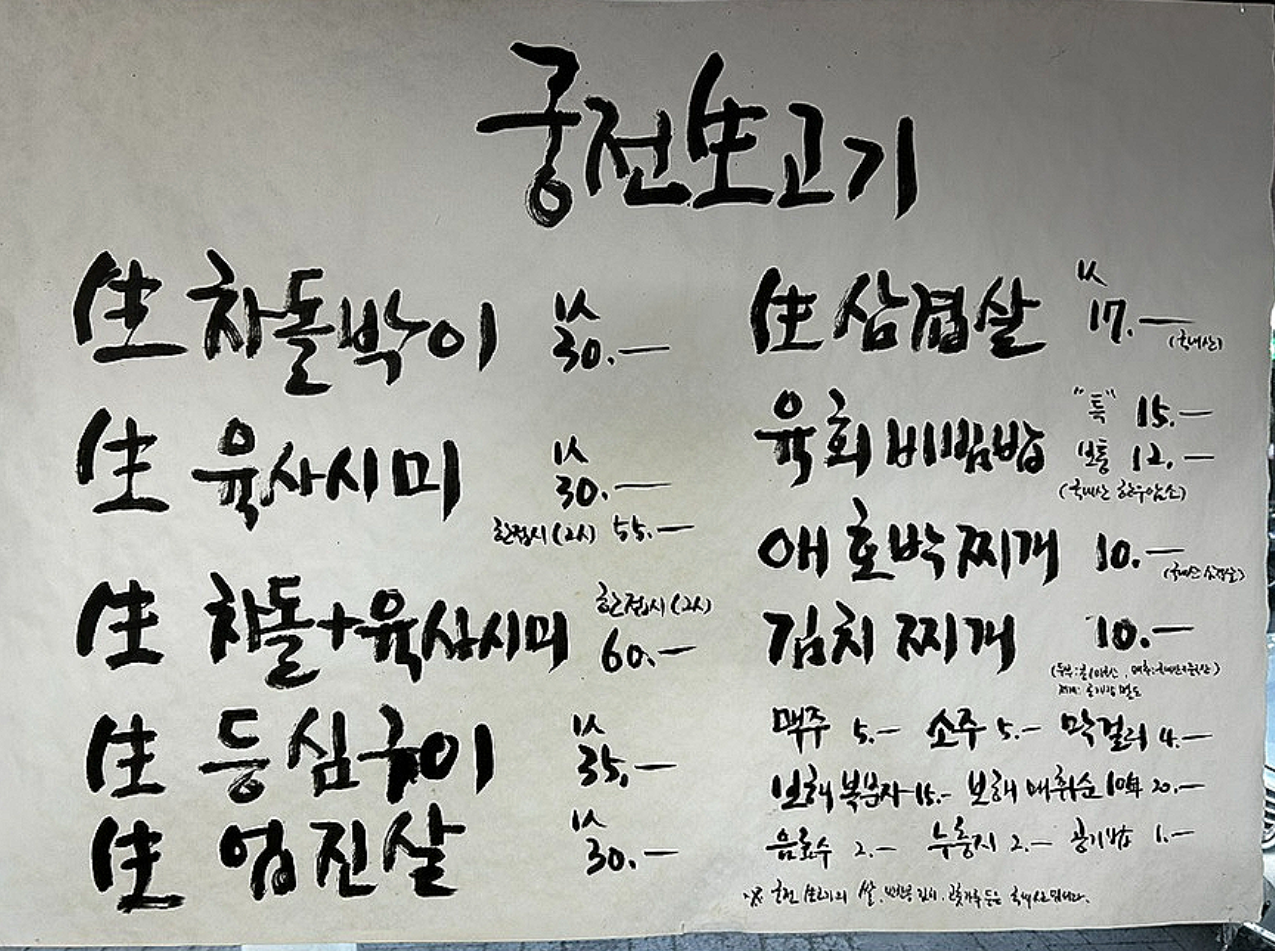 궁전生고기
生 차돌박이 1人 30.—
生 육사시미 1人 30.—
한접시(2人) 55.—
生 차돌+육사시미 한접시(2人) 60.—
生 등심구이 1人 35.—
生 업진살 1人 30.—
生 삼겹살 1人 17.— (국내산)
육회비빔밥 "특" 15.—
보통 12.—
(국내산 한우암소)
애호박찌개 10.—
김치찌개 10.—
맥주 5.— 소주 5.— 막걸리 4.—
보해 복분자 15.— 보해 매취순 10年 20.—
음료수 2.— 누룽지 2.— 공기밥 1.—
※ 궁전 생고기의 쌀, 김치, 고춧가루 등은 국내산입니다.